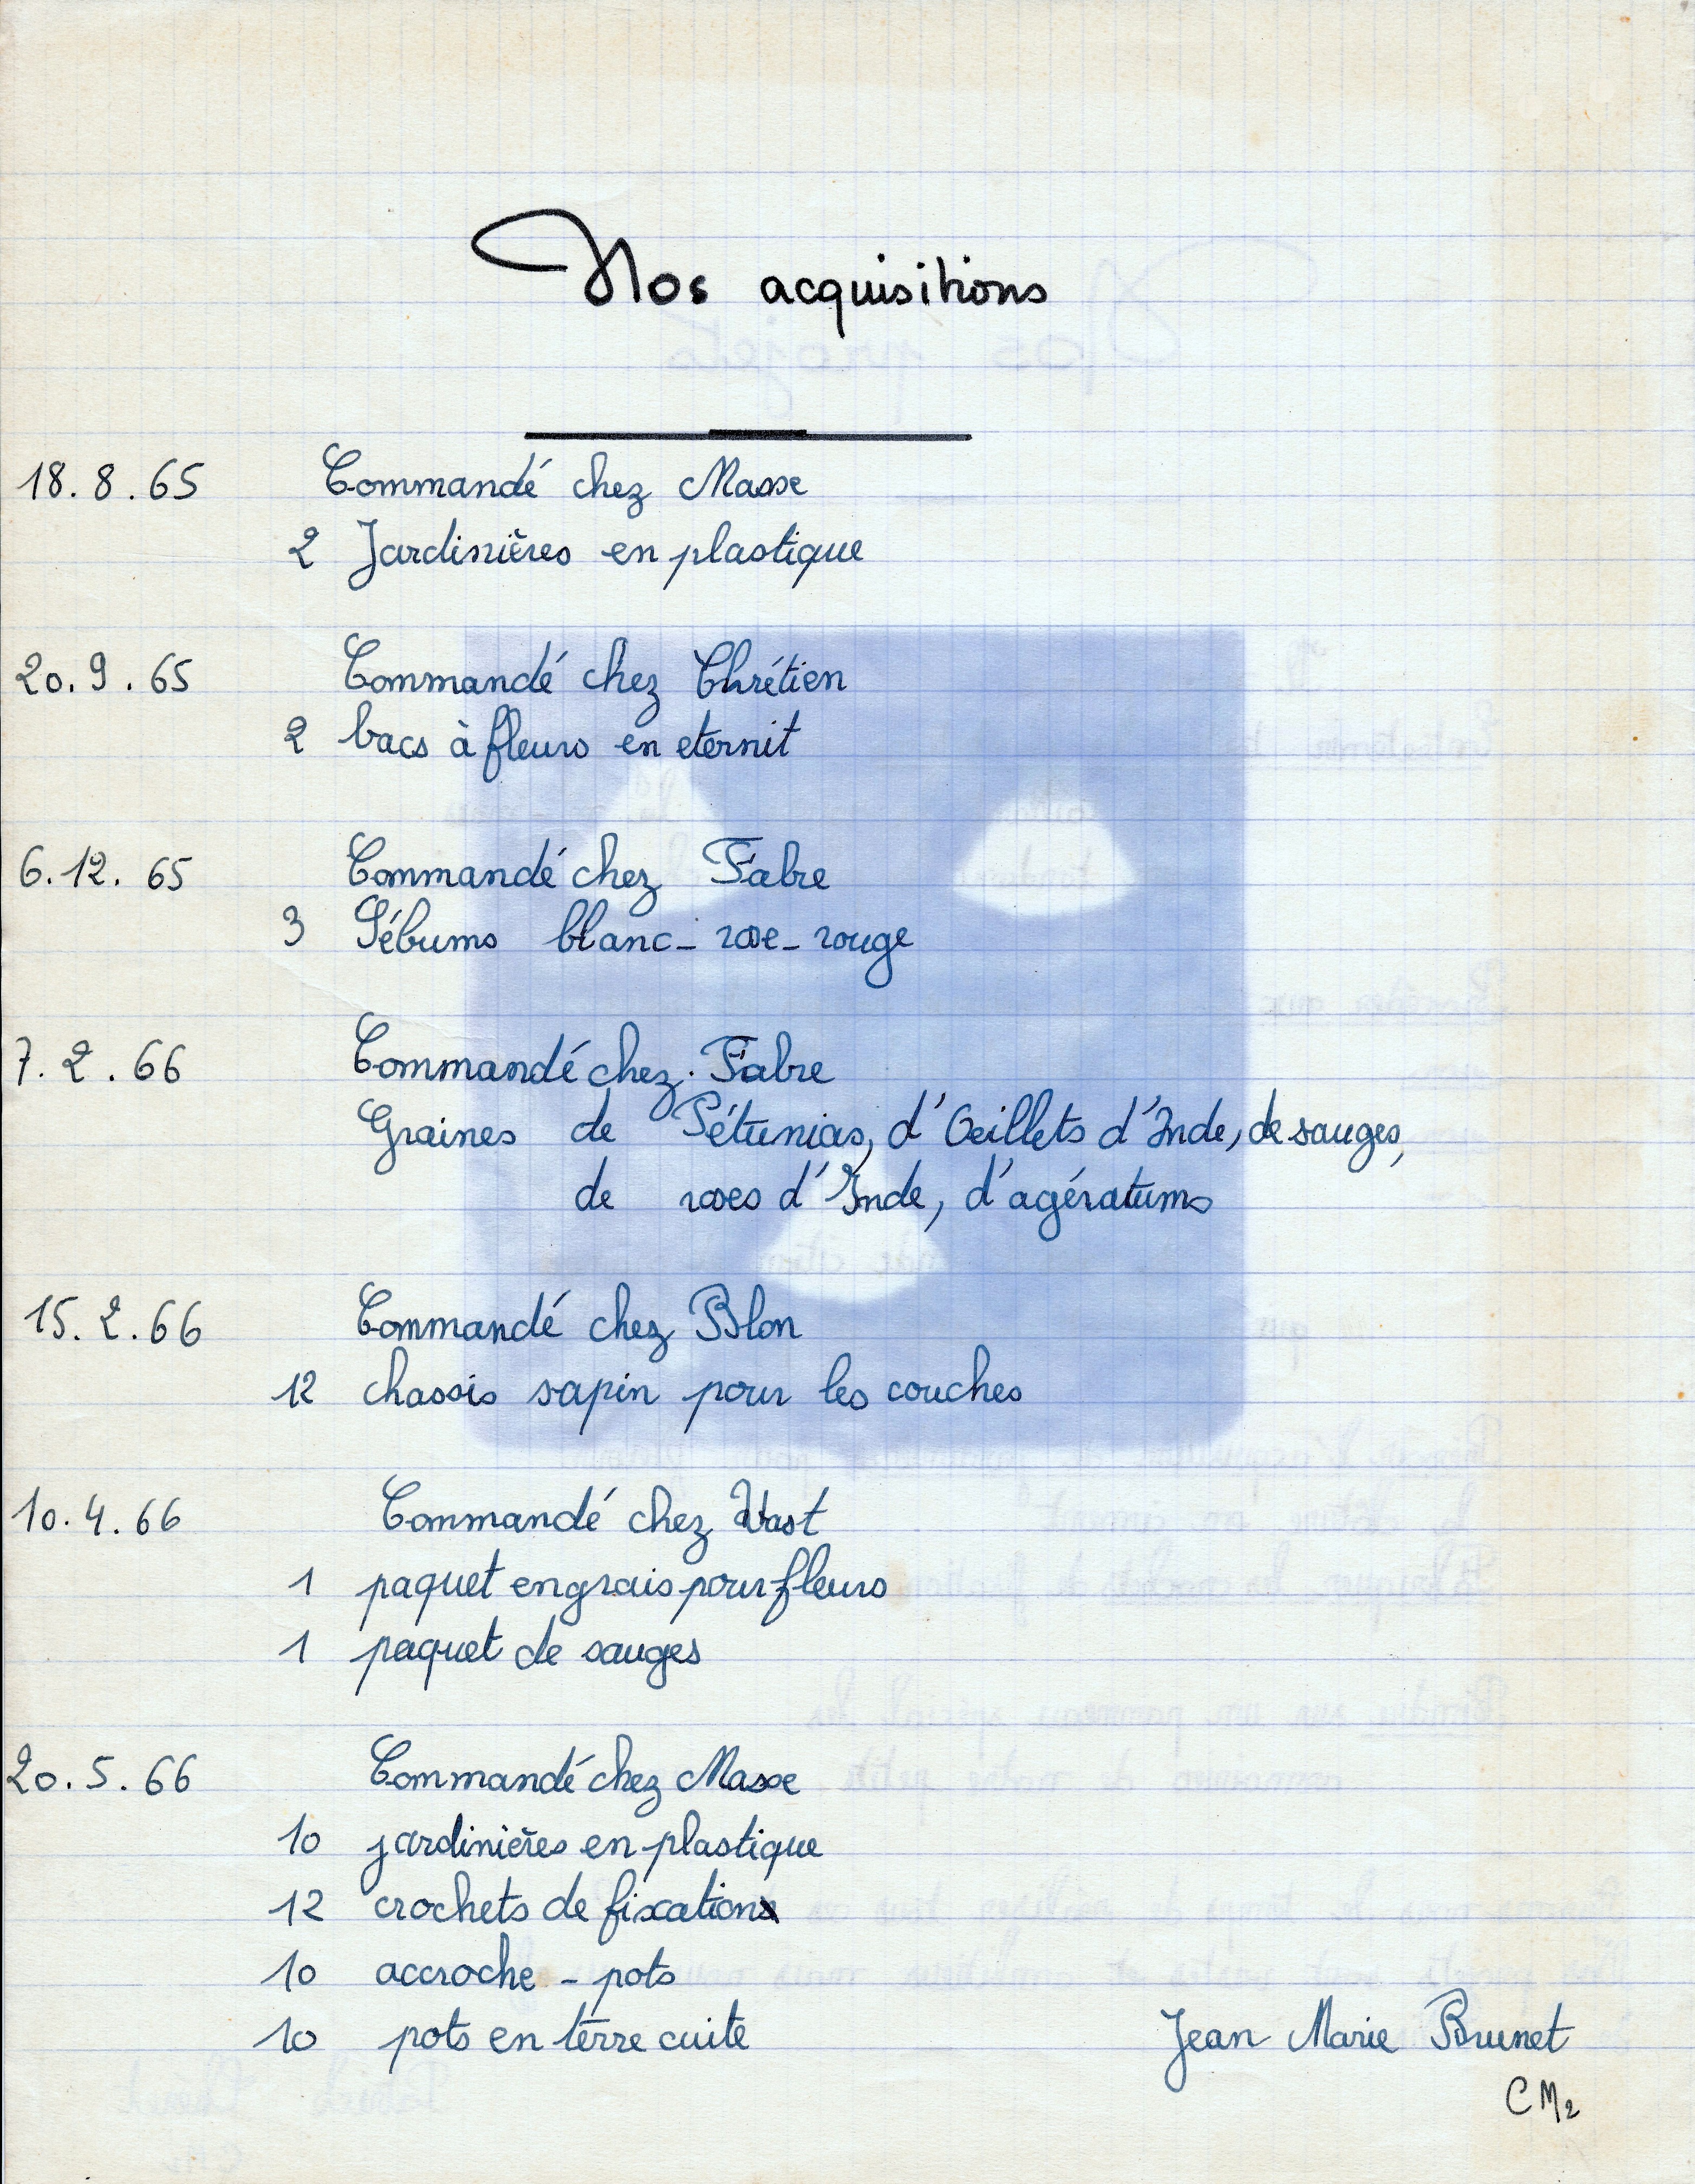 Nos acquisitions
18.8.65 Commandé chez Masse
2 Jardinières en plastique
20.9.65 Commandé chez Chrétien
2 bacs à fleurs en eternit
6.12.65 Commandé chez Fabre
3 Sébums blanc-rose-rouge
7.2.66 Commandé chez Fabre
Graines de Pétunias, d'Oeillets d'Inde, de sauges,
de roses d'Inde, d'agératums
15.2.66 Commandé chez Blon
12 chassis sapin pour les couches
10.4.66 Commandé chez Vast
1 paquet engrais pour fleurs
1 paquet de sauges
20.5.66 Commandé chez Masse
10 jardinières en plastique
12 crochets de fixation
10 accroche-pots
10 pots en terre cuite
Jean Marie Brunet
CM2